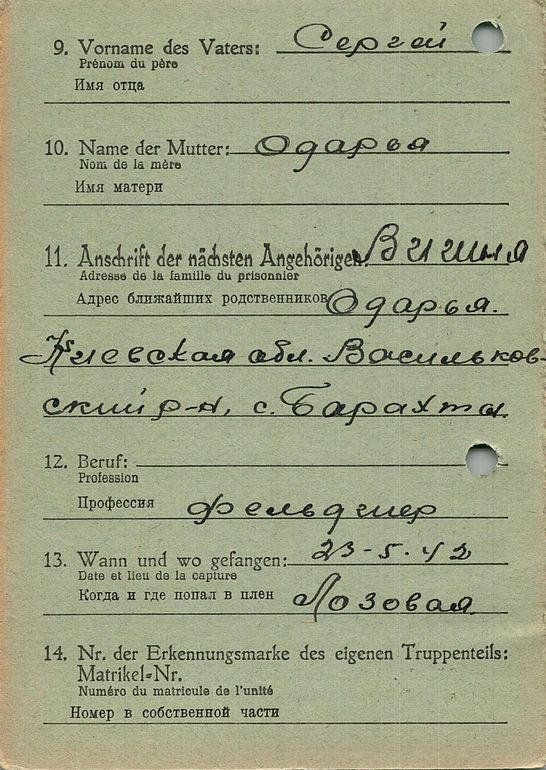 9. Vorname des Vaters: Сергей
Prénom du père
Имя отца
10. Name der Mutter: Одарья
Nom de la mère
Имя матери
11. Anschrift der nächsten Angehörigen:
Adresse de la famille du prisonnier
Адрес ближайших родственников Одарья.
Киевская обл. Васильков-
ский р-н, с. Барахты.
12. Beruf:
Profession
Профессия фельдшер
13. Wann und wo gefangen: 23-5-42
Date et lieu de la capture
Когда и где попал в плен Лозовая
14. Nr. der Erkennungsmarke des eigenen Truppenteils:
Matrikel-Nr.
Numéro du matricule de l'unité
Номер в собственной части